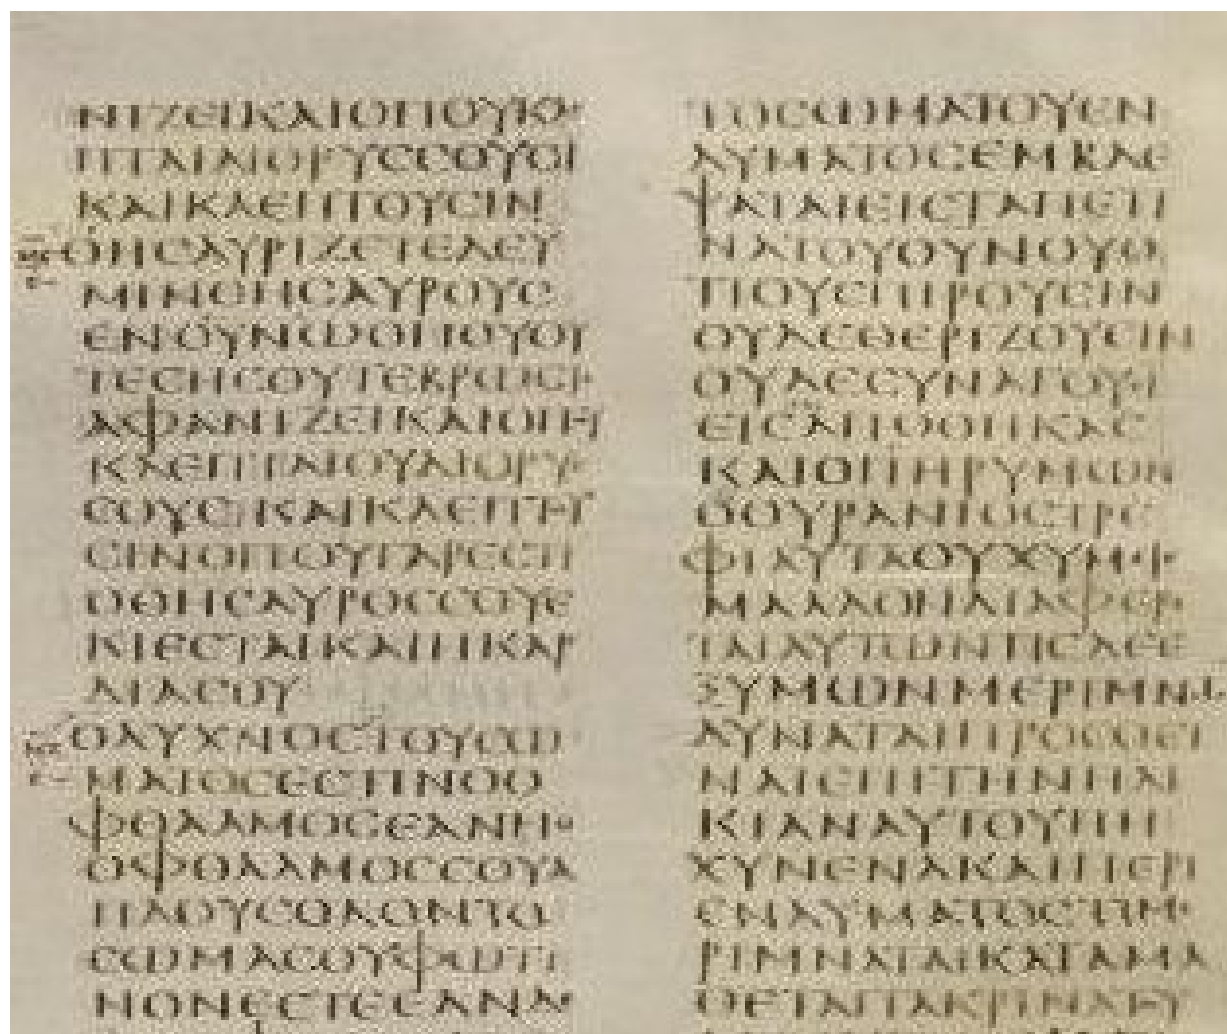 ΝΙΖΕΙΚΑΙΟΠΟΥΚΛΕ
ΠΤΑΙΔΙΟΡΥϹϹΟΥϹΙ
ΚΑΙΚΛΕΠΤΟΥϹΙΝ
ΘΗϹΑΥΡΙΖΕΤΕΔΕΥ
ΜΙΝΘΗϹΑΥΡΟΥϹ
ΕΝΟΥΝΩΟΠΟΥΟΥ
ΤΕϹΗϹΟΥΤΕΒΡΩϹΙϹ
ΑΦΑΝΙΖΕΙΚΑΙΟΠΟΥ
ΚΛΕΠΤΑΙΟΥΔΙΟΡΥϹ
ϹΟΥϹΙΚΑΙΚΛΕΠΤΟΥ
ϹΙΝΟΠΟΥΓΑΡΕϹΤΙ
ΟΘΗϹΑΥΡΟϹϹΟΥΕ
ΚΙΕϹΤΑΙΚΑΙΗΚΑΡ
ΔΙΑϹΟΥ
ΟΛΥΧΝΟϹΤΟΥϹΩ
ΜΑΤΟϹΕϹΤΙΝΟΟ
ΦΘΑΛΜΟϹΕΑΝΗ
ΟΦΘΑΛΜΟϹϹΟΥΑ
ΠΛΟΥϹΟΛΟΝΤΟ
ϹΩΜΑϹΟΥΦΩΤΙ
ΝΟΝΕϹΤΕΕΑΝΔΕ
ΤΟϹΩΜΑΤΟΥΕΝ
ΔΥΜΑΤΟϹΕΜΒΛΕ
ΨΑΤΑΙΕΙϹΤΑΠΕΤΙ
ΝΑΤΟΥΟΥΝΟΥΟ
ΤΙΟΥϹΠΙΡΟΥϹΙΝ
ΟΥΔΕΘΕΡΙΖΟΥϹΙΝ
ΟΥΔΕϹΥΝΑΓΟΥϹΙ
ΕΙϹΑΠΟΘΗΚΑϹ
ΚΑΙΟΠΗΡΥΜΩΝ
ΟΟΥΡΑΝΙΟϹΤΡΕ
ΦΙΑΥΤΑΟΥΧΥΜΙϹ
ΜΑΛΛΟΝΔΙΑΦΕΡΕ
ΤΑΙΑΥΤΩΝΤΙϹΔΕΕ
ΞΥΜΩΝΜΕΡΙΜΝΩ
ΔΥΝΑΤΑΙΠΡΟϹΘΕΙ
ΝΑΙΕΠΙΤΗΝΗΛΙ
ΚΙΑΝΑΥΤΟΥΠΗ
ΧΥΝΕΝΑΚΑΙΠΕΡΙ
ΕΝΔΥΜΑΤΟϹΤΙΜΕ
ΡΙΜΝΑΤΑΙΚΑΤΑΜΑ
ΘΕΤΑΙΤΑΚΡΙΝΑΤΟΥ